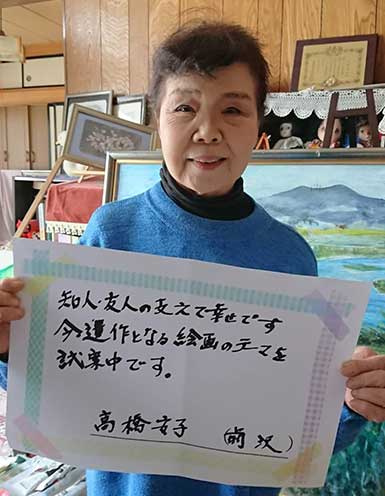 知人・友人の支えで幸せです
今遺作となる絵画のテーマを
試案中です。
高橋安子 (前沢)